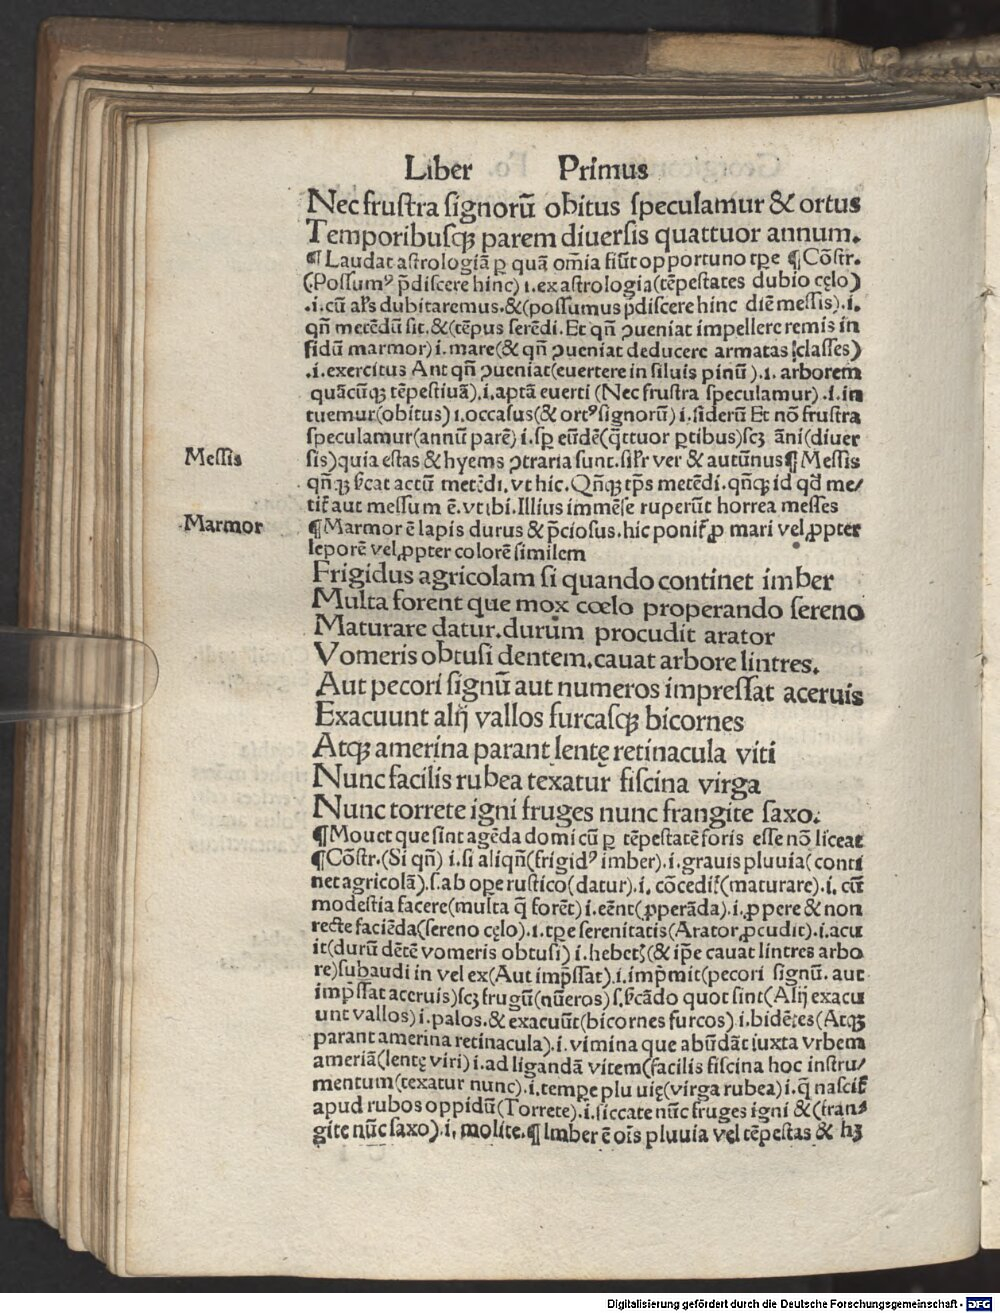 Liber Primus
Nec frustra signorū obitus speculamur & ortus
Temporibusqꝫ parem diuersis quattuor annum.
¶ Laudat astrologiā ꝑ quā om̄ia fiūt opportuno tꝑe ¶ Cōstr.
(Possumꝰ p̄discere hinc) i. ex astrologia (tēpestates dubio cęlo)
.i. cū al's dubitaremus. & (possumus p̄discere hinc diē messis). i.
qn̄ metēdū sit. & (tēpus serēdi. Et qn̄ ꝯueniat impellere remis in
fidū marmor) i. mare (& qn̄ ꝯueniat deducere armatas classes)
.i. exercitus Ant qn̄ ꝯueniat (euertere in siluis pinū). i. arborem
quācūqꝫ tēpestiuā). i. aptā euerti (Nec frustra speculamur) .i. in
tuemur (obitus) i. occasus (& ortꝰ signorū) i. siderū Et nō frustra
speculamur (annū parē) i. sꝑ eūdē (q̄ttuor ꝑtibus) scꝫ āni (diuer
Messis
sis) quia estas & hyems ꝯtraria sunt. sil'r ver & autūnus ¶ Messis
qn̄qꝫ v̄cat actū metēdi. vt hic. Qn̄qꝫ tp̄s metēdi. qn̄qꝫ id qd̄ me/
tit̄ aut messum ē. vt ibi. Illius immēse ruperūt horrea messes
Marmor
¶ Marmor ē lapis durus & p̄ciosus. hic ponit̄ ꝓ mari vel ꝓpter
leporē vel ꝓpter colorē similem
Frigidus agricolam si quando continet imber
Multa forent que mox cœlo properando sereno
Maturare datur. durum procudit arator
Vomeris obtusi dentem. cauat arbore lintres.
Aut pecori signū aut numeros impressat aceruis
Exacuunt alij vallos furcasqꝫ bicornes
Atqꝫ amerina parant lentę retinacula viti
Nunc facilis rubea texatur fiscina virga
Nunc torrete igni fruges nunc frangite saxo.
¶ Mouet que sint agēda domi cū ꝑ tēpestatē foris esse nō liceat
¶ Cōstr. (Si qn̄) i. si aliqn̄ (frigidꝰ imber). i. grauis pluuia (conti
net agricolā). s. ab ope rustico (datur). i. cōcedit̄ (maturare). i. cū
modestia facere (multa q̄ forēt) i. eēnt (ꝓperāda). i. ꝓpere & non
recte faciēda (sereno cęlo). i. tꝑe serenitatis (Arator ꝓcudit). i. acu
it (durū dētē vomeris obtusi) i. hebet (& ip̄e cauat lintres arbo
re) subaudi in vel ex (Aut imp̄ssat). i. imp̄mit (pecori signū. aut
imp̄ssat aceruis) scꝫ frugū (nūeros) s. v̄cādo quot sint (Alij exacu
unt vallos) i. palos. & exacuūt (bicornes furcos) i. bidētes (Atqꝫ
parant amerina retinacula). i. vimina que abūdāt iuxta vrbem
ameriā (lentę viti) i. ad ligandā vitem (facilis fiscina hoc instru/
mentum (texatur nunc). i. tempe pluuię (virga rubea) i. q̄ nascit̄
apud rubos oppidū (Torrete). i. siccate nūc fruges igni & (fran
gite nūc saxo). i. molite. ¶ Imber ē oīs pluuia vel tēpestas & hꝫ
Digitalisierung gefördert durch die Deutsche Forschungsgemeinschaft - DFG